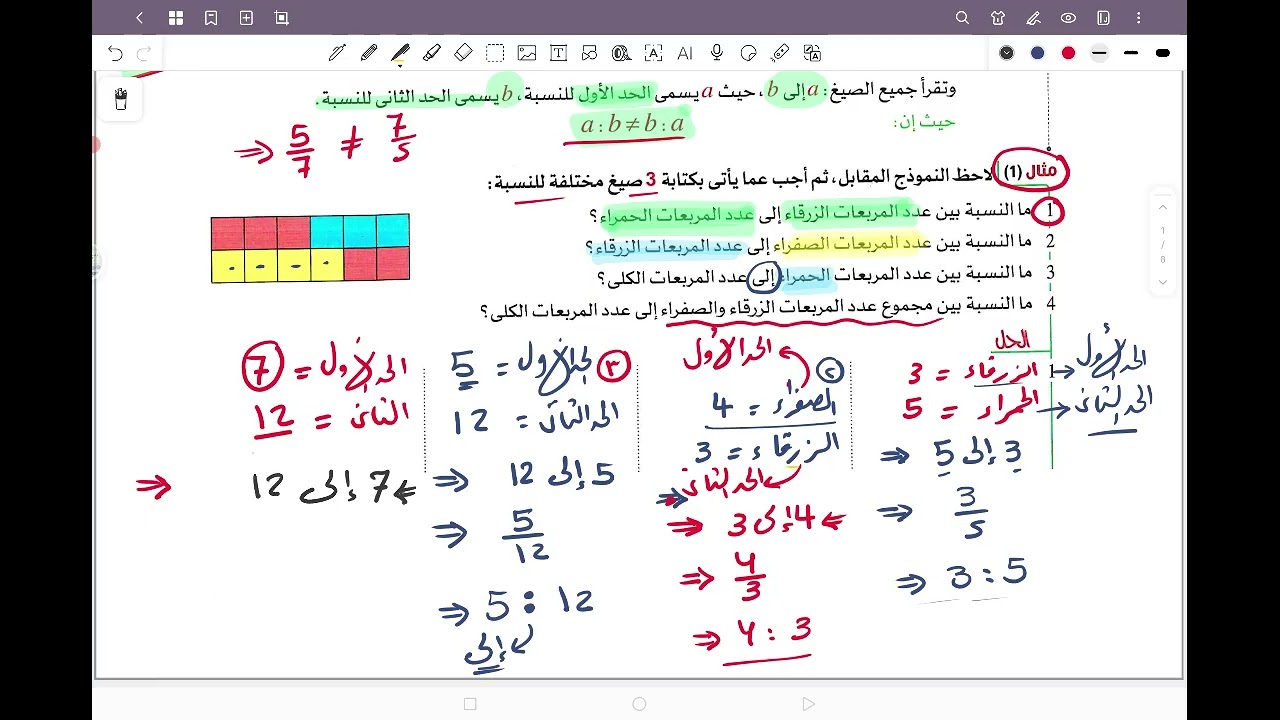 AI
وتقرأ جميع الصيغ: a إلى b، حيث a يسمى الحد الأول للنسبة، b يسمى الحد الثانى للنسبة.
حيث إن:
a : b ≠ b : a
⇒ 5/7 ≠ 7/5
مثال (1) لاحظ النموذج المقابل، ثم أجب عما يأتى بكتابة 3 صيغ مختلفة للنسبة:
1 ما النسبة بين عدد المربعات الزرقاء إلى عدد المربعات الحمراء؟
2 ما النسبة بين عدد المربعات الصفراء إلى عدد المربعات الزرقاء؟
3 ما النسبة بين عدد المربعات الحمراء إلى عدد المربعات الكلى؟
4 ما النسبة بين مجموع عدد المربعات الزرقاء والصفراء إلى عدد المربعات الكلى؟
1
/
8
الحل
1 الزرقاء = 3 → الحد الأول
الحمراء = 5 → الحد الثانى
⇒ 3 إلى 5
⇒ 3/5
⇒ 3 : 5
الحد الأول
٢
الصفراء = 4
الزرقاء = 3
الحد الثانى
⇒ 4 إلى 3
⇒ 4/3
⇒ 4 : 3
٣ الحد الأول = 5
الحد الثانى = 12
⇒ 5 إلى 12
⇒ 5/12
⇒ 5 : 12
إلى
الحد الأول = 7
الثانى = 12
⇒ 7 إلى 12